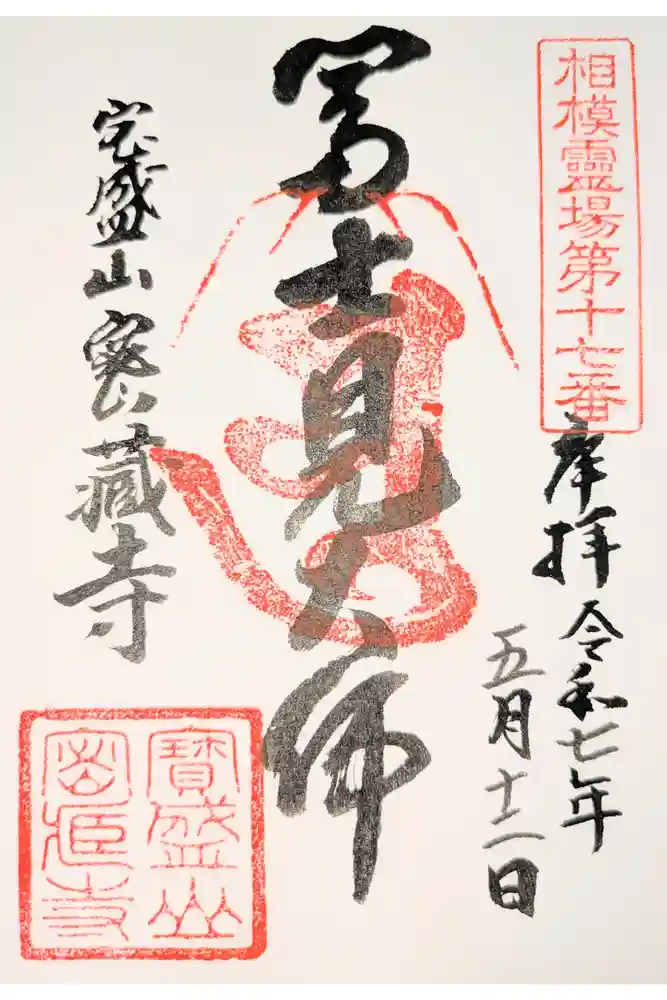 相模霊場第十七番
奉拝 令和七年
五月十二日
富士見大師
宝盛山 密蔵寺
寶盛山
密蔵寺